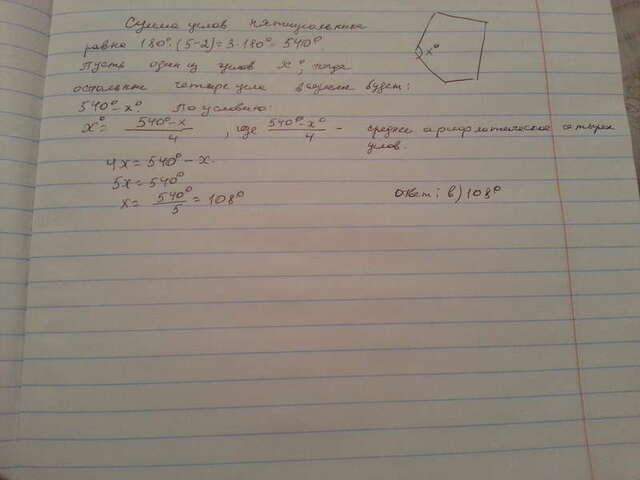 Сумма углов пятиугольника
равна 180°·(5-2)=3·180°=540°.
Пусть один из углов x°, тогда
остальные четыре угла в сумме будет:
540°-x° По условию:
x°= \frac{540°-x}{4}, где \frac{540°-x°}{4} - среднее арифметическое четырех
углов.
4x=540°-x.
5x=540°
x= \frac{540°}{5} = 108°
Ответ: в) 108°
x°